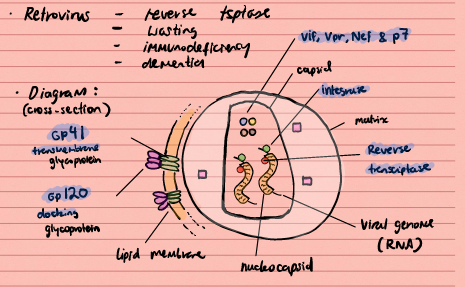 • Retrovirus - reverse tsptase
- wasting
- immunodeficiency
- dementia
• Diagram:
(cross-section)
GP41
transmembrane
glycoprotein
GP120
docking
glycoprotein
lipid membrane
vif, Vpr, Nef & p7
capsid
integrase
matrix
Reverse
transcriptase
Viral genome
(RNA)
nucleocapsid